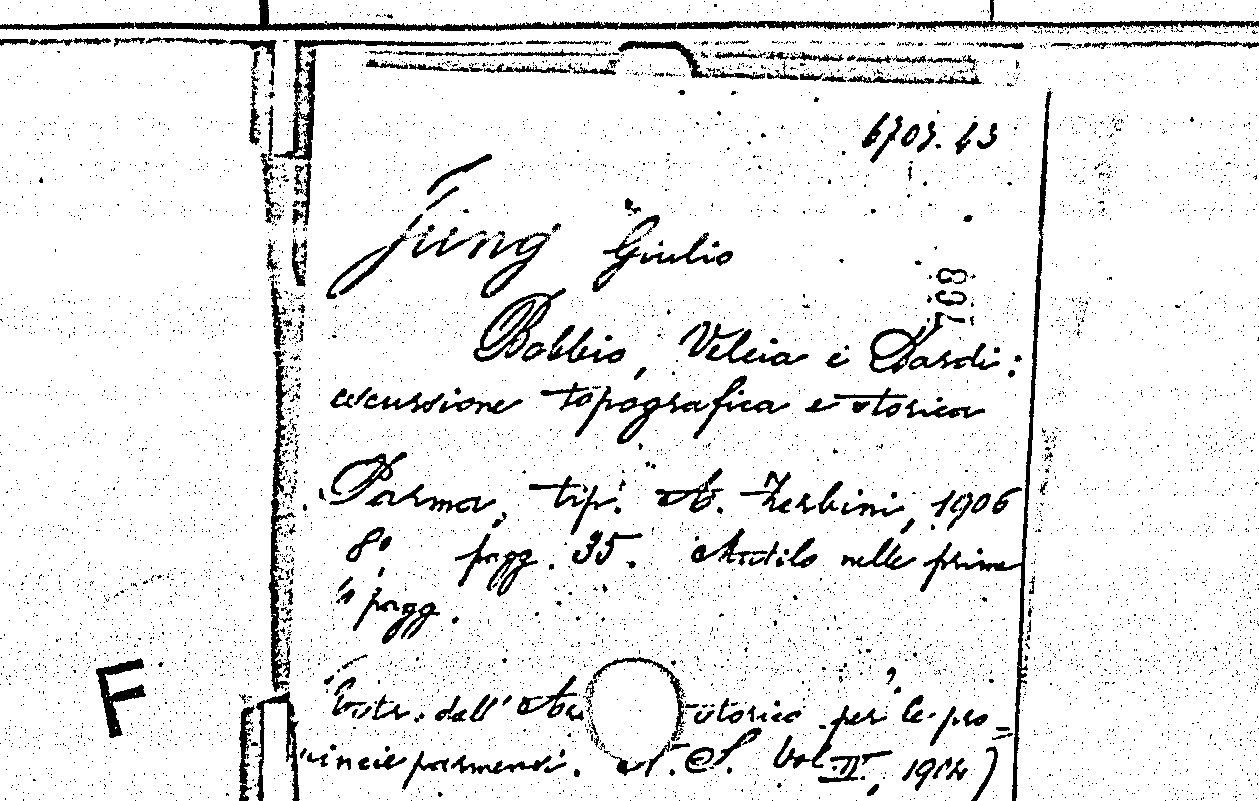 6707. 63
Jung Giulio
768
Bobbio, Veleia e Bardi:
escursione topografica e storica
Parma, tip. A. Zerbini, 1906
8º pagg. 35. Mutilo nelle prime
pagg.
Estr. dall' storico per le pro=
vincie parmensi. N. S. Vol. II, 1904)
F